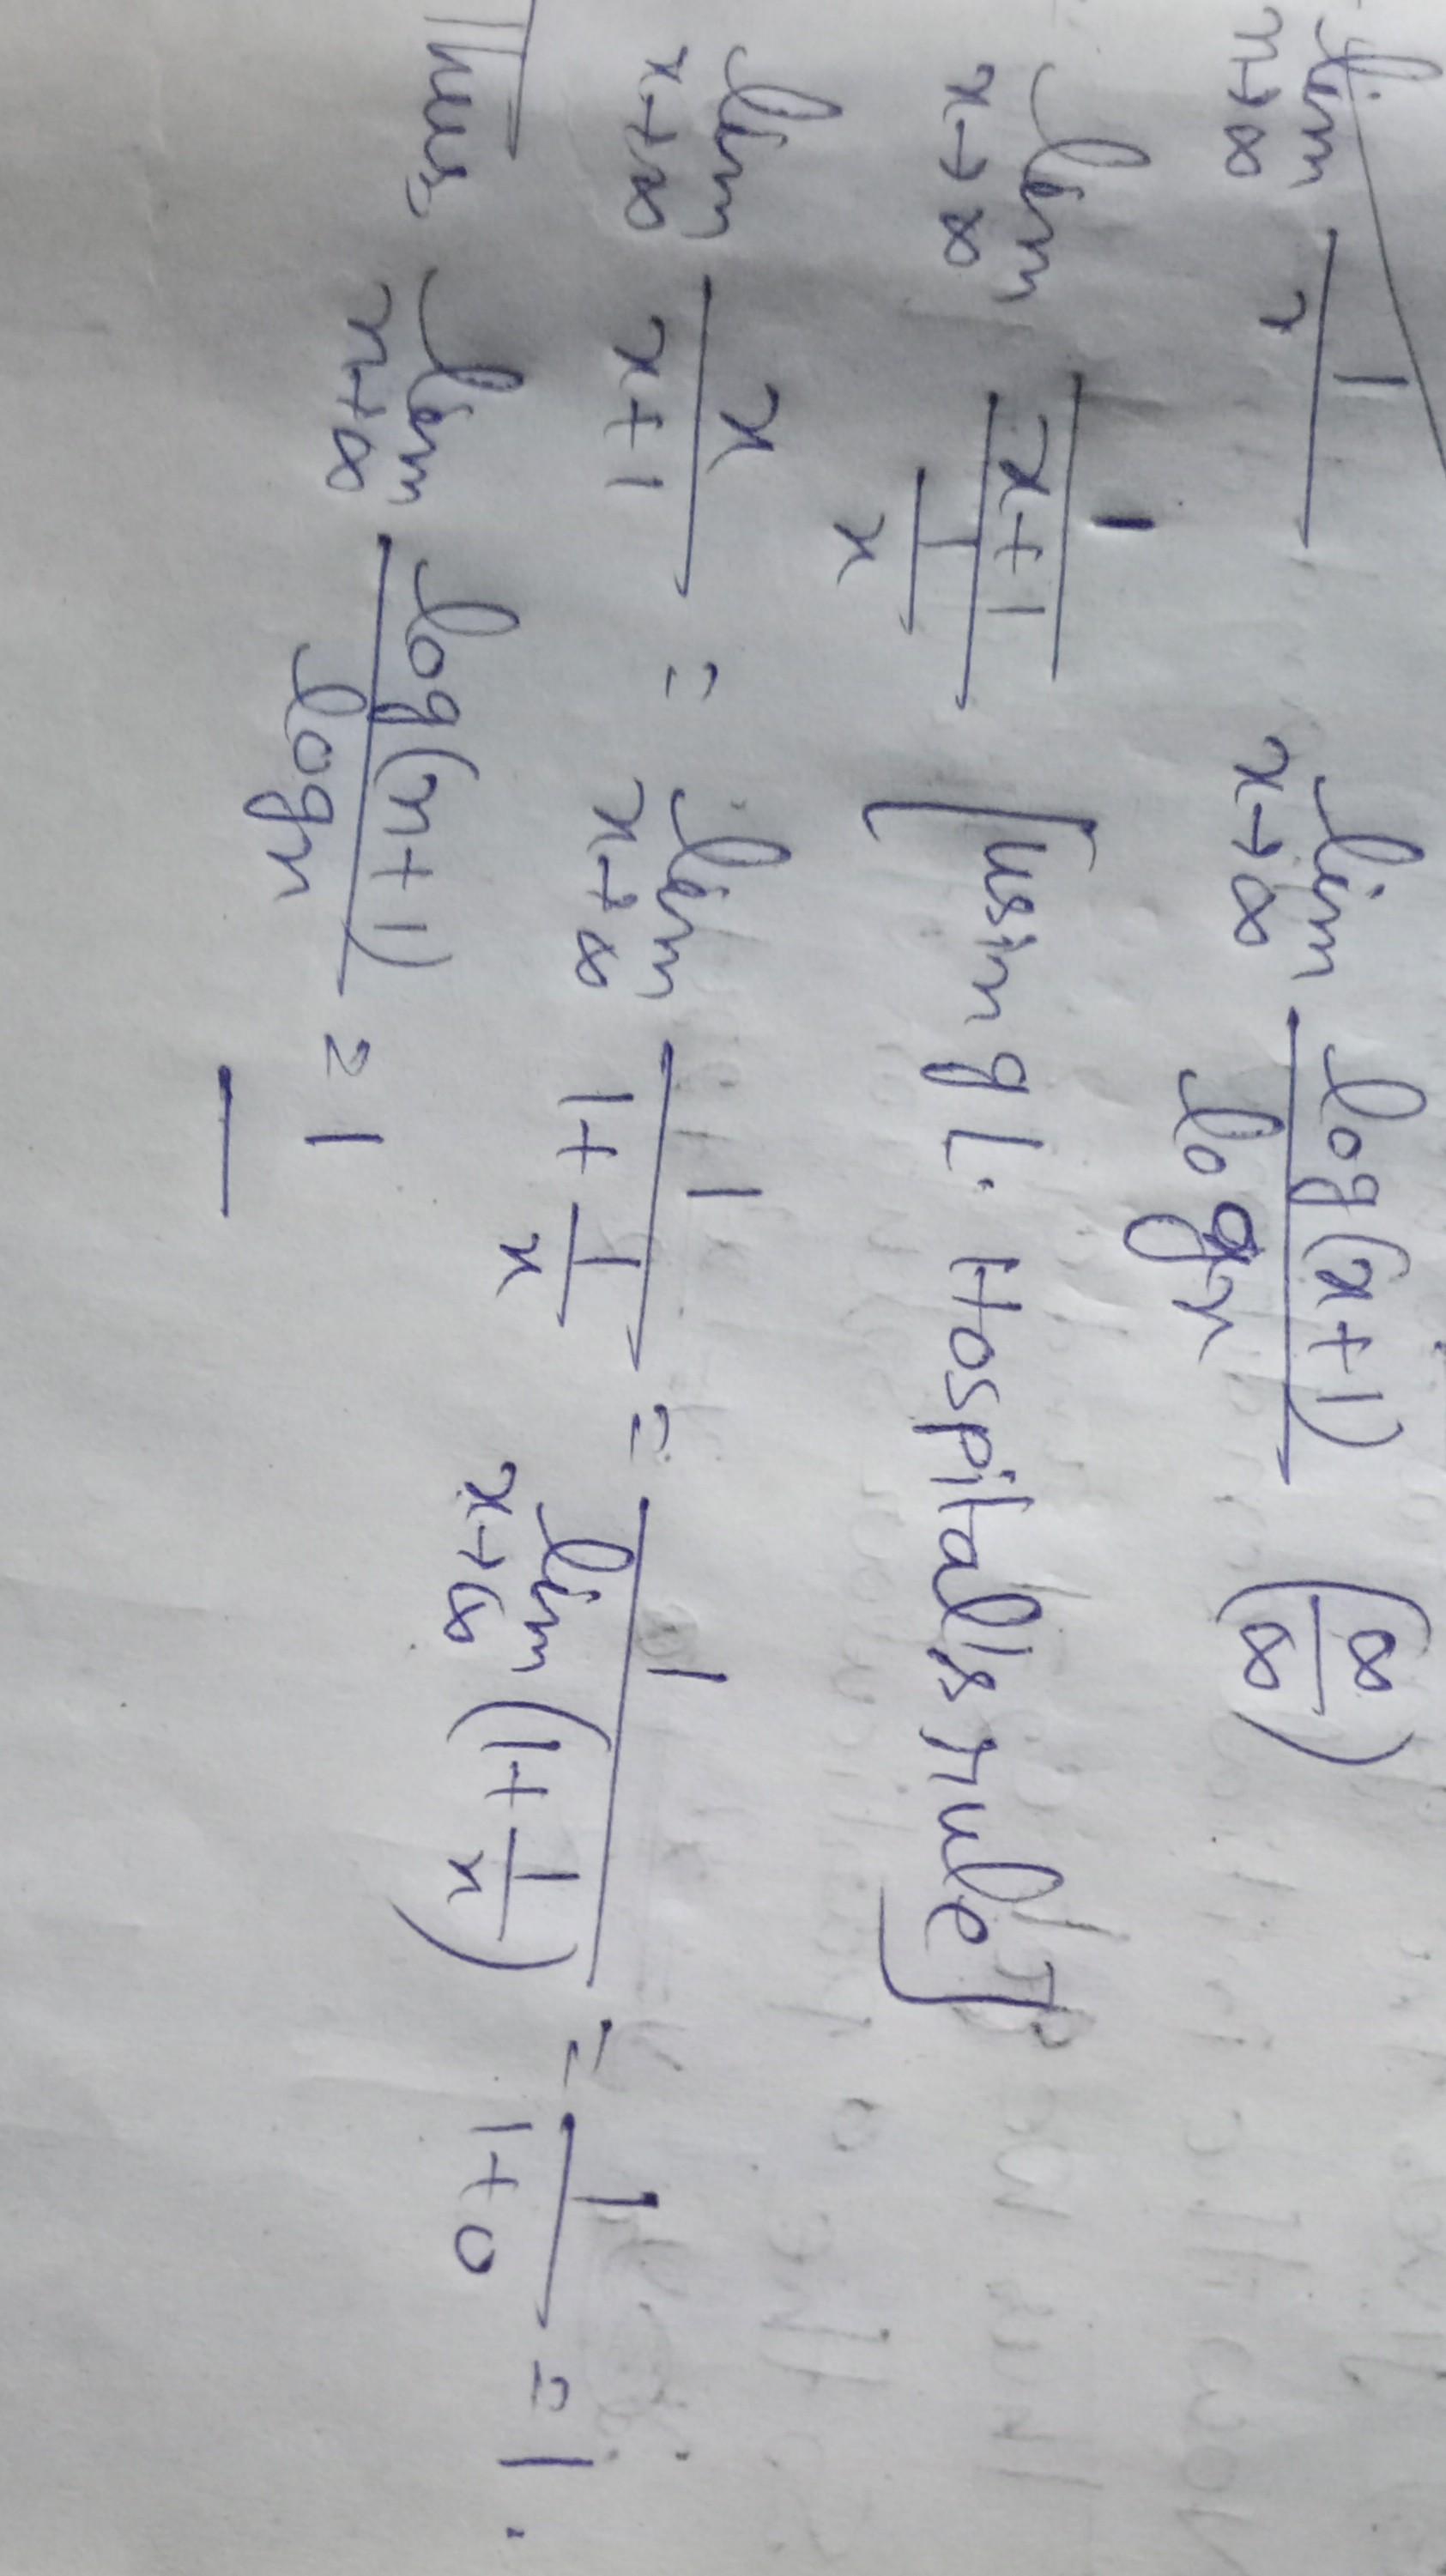 lim n→∞ 1/n lim x→∞ log(x+1)/log x (∞/∞)
lim x→∞ (1/(x+1))/(1/x) [using L. Hospital's rule]
lim x→∞ x/(x+1) = lim x→∞ 1/(1+1/x) = 1/(lim x→∞ (1+1/x)) = 1/(1+0) = 1.
Thus, lim n→∞ log(n+1)/log n = 1